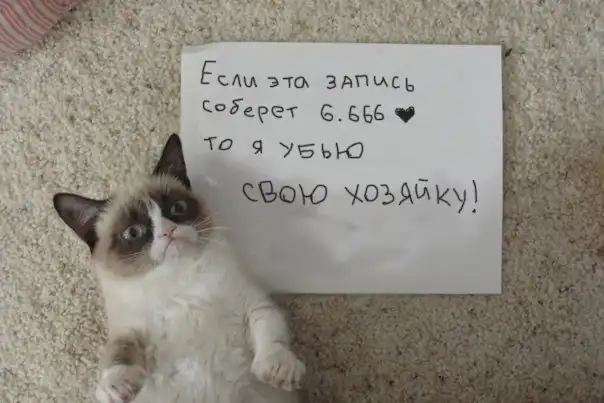 Если эта запись
соберет 6.666 🖤
то я убью
свою хозяйку!